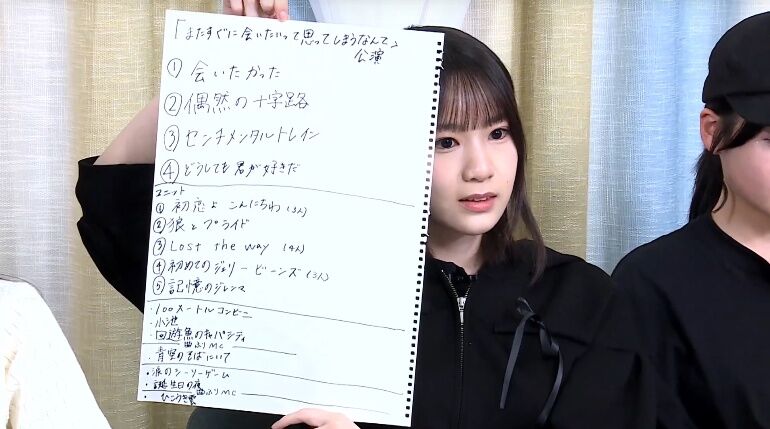 「またすぐに会いたいって思ってしまうなんて」
公演
① 会いたかった
② 偶然の十字路
③ センチメンタルトレイン
④ どうしても君が好きだ
ユニット
① 初恋よ こんにちわ (3人)
② 狼とプライド
③ Lost the way (4人)
④ 初めてのジェリービーンズ (3人)
⑤ 記憶のジレンマ
・100メートルコンビニ
・小池
・回遊魚のキャパシティ
曲ふりMC
・青空のそばにいて
・涙のシーソーゲーム
・誕生日の夜
曲ふりMC
ひこうき雲